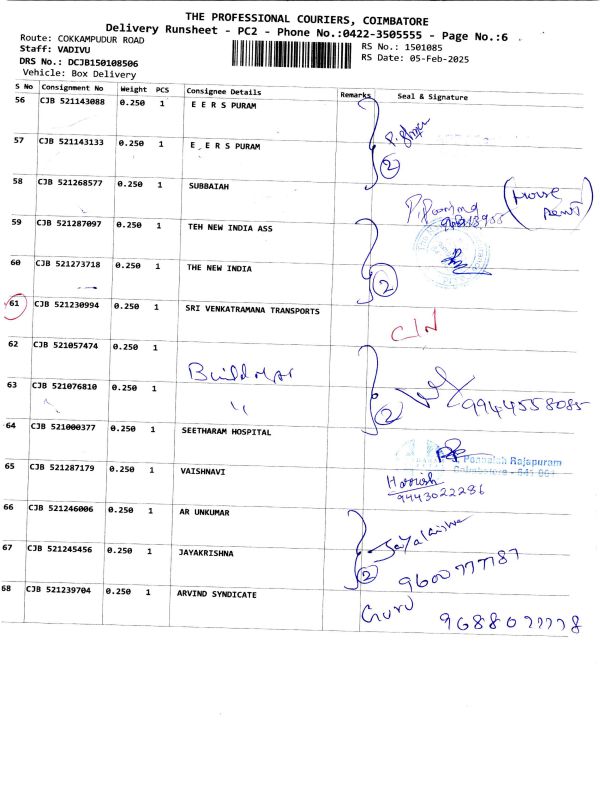 THE PROFESSIONAL COURIERS, COIMBATORE
Delivery Runsheet - PC2 - Phone No.:0422-3505555 - Page No.:6
Route: COKKAMPUDUR ROAD
RS No.: 1501085
Staff: VADIVU
RS Date: 05-Feb-2025
DRS No.: DCJB150108506
Vehicle: Box Delivery
S No Consignment No Weight PCS Consignee Details Remarks Seal & Signature
56 CJB 521143088 0.250 1 E E R S PURAM
57 CJB 521143133 0.250 1 E E R S PURAM
2
58 CJB 521268577 0.250 1 SUBBAIAH
59 CJB 521287097 0.250 1 TEH NEW INDIA ASS
60 CJB 521273718 0.250 1 THE NEW INDIA
2
61 CJB 521230994 0.250 1 SRI VENKATRAMANA TRANSPORTS
C/N
62 CJB 521057474 0.250 1
63 CJB 521076810 0.250 1 "
2 9944558085
64 CJB 521000377 0.250 1 SEETHARAM HOSPITAL
Rajapuram
Coimbatore - 641 001
65 CJB 521287179 0.250 1 VAISHNAVI
Harrish
9443022286
66 CJB 521246006 0.250 1 AR UNKUMAR
Jayakrishna
67 CJB 521245456 0.250 1 JAYAKRISHNA
2 9600777787
68 CJB 521239704 0.250 1 ARVIND SYNDICATE
Guru 9688077778